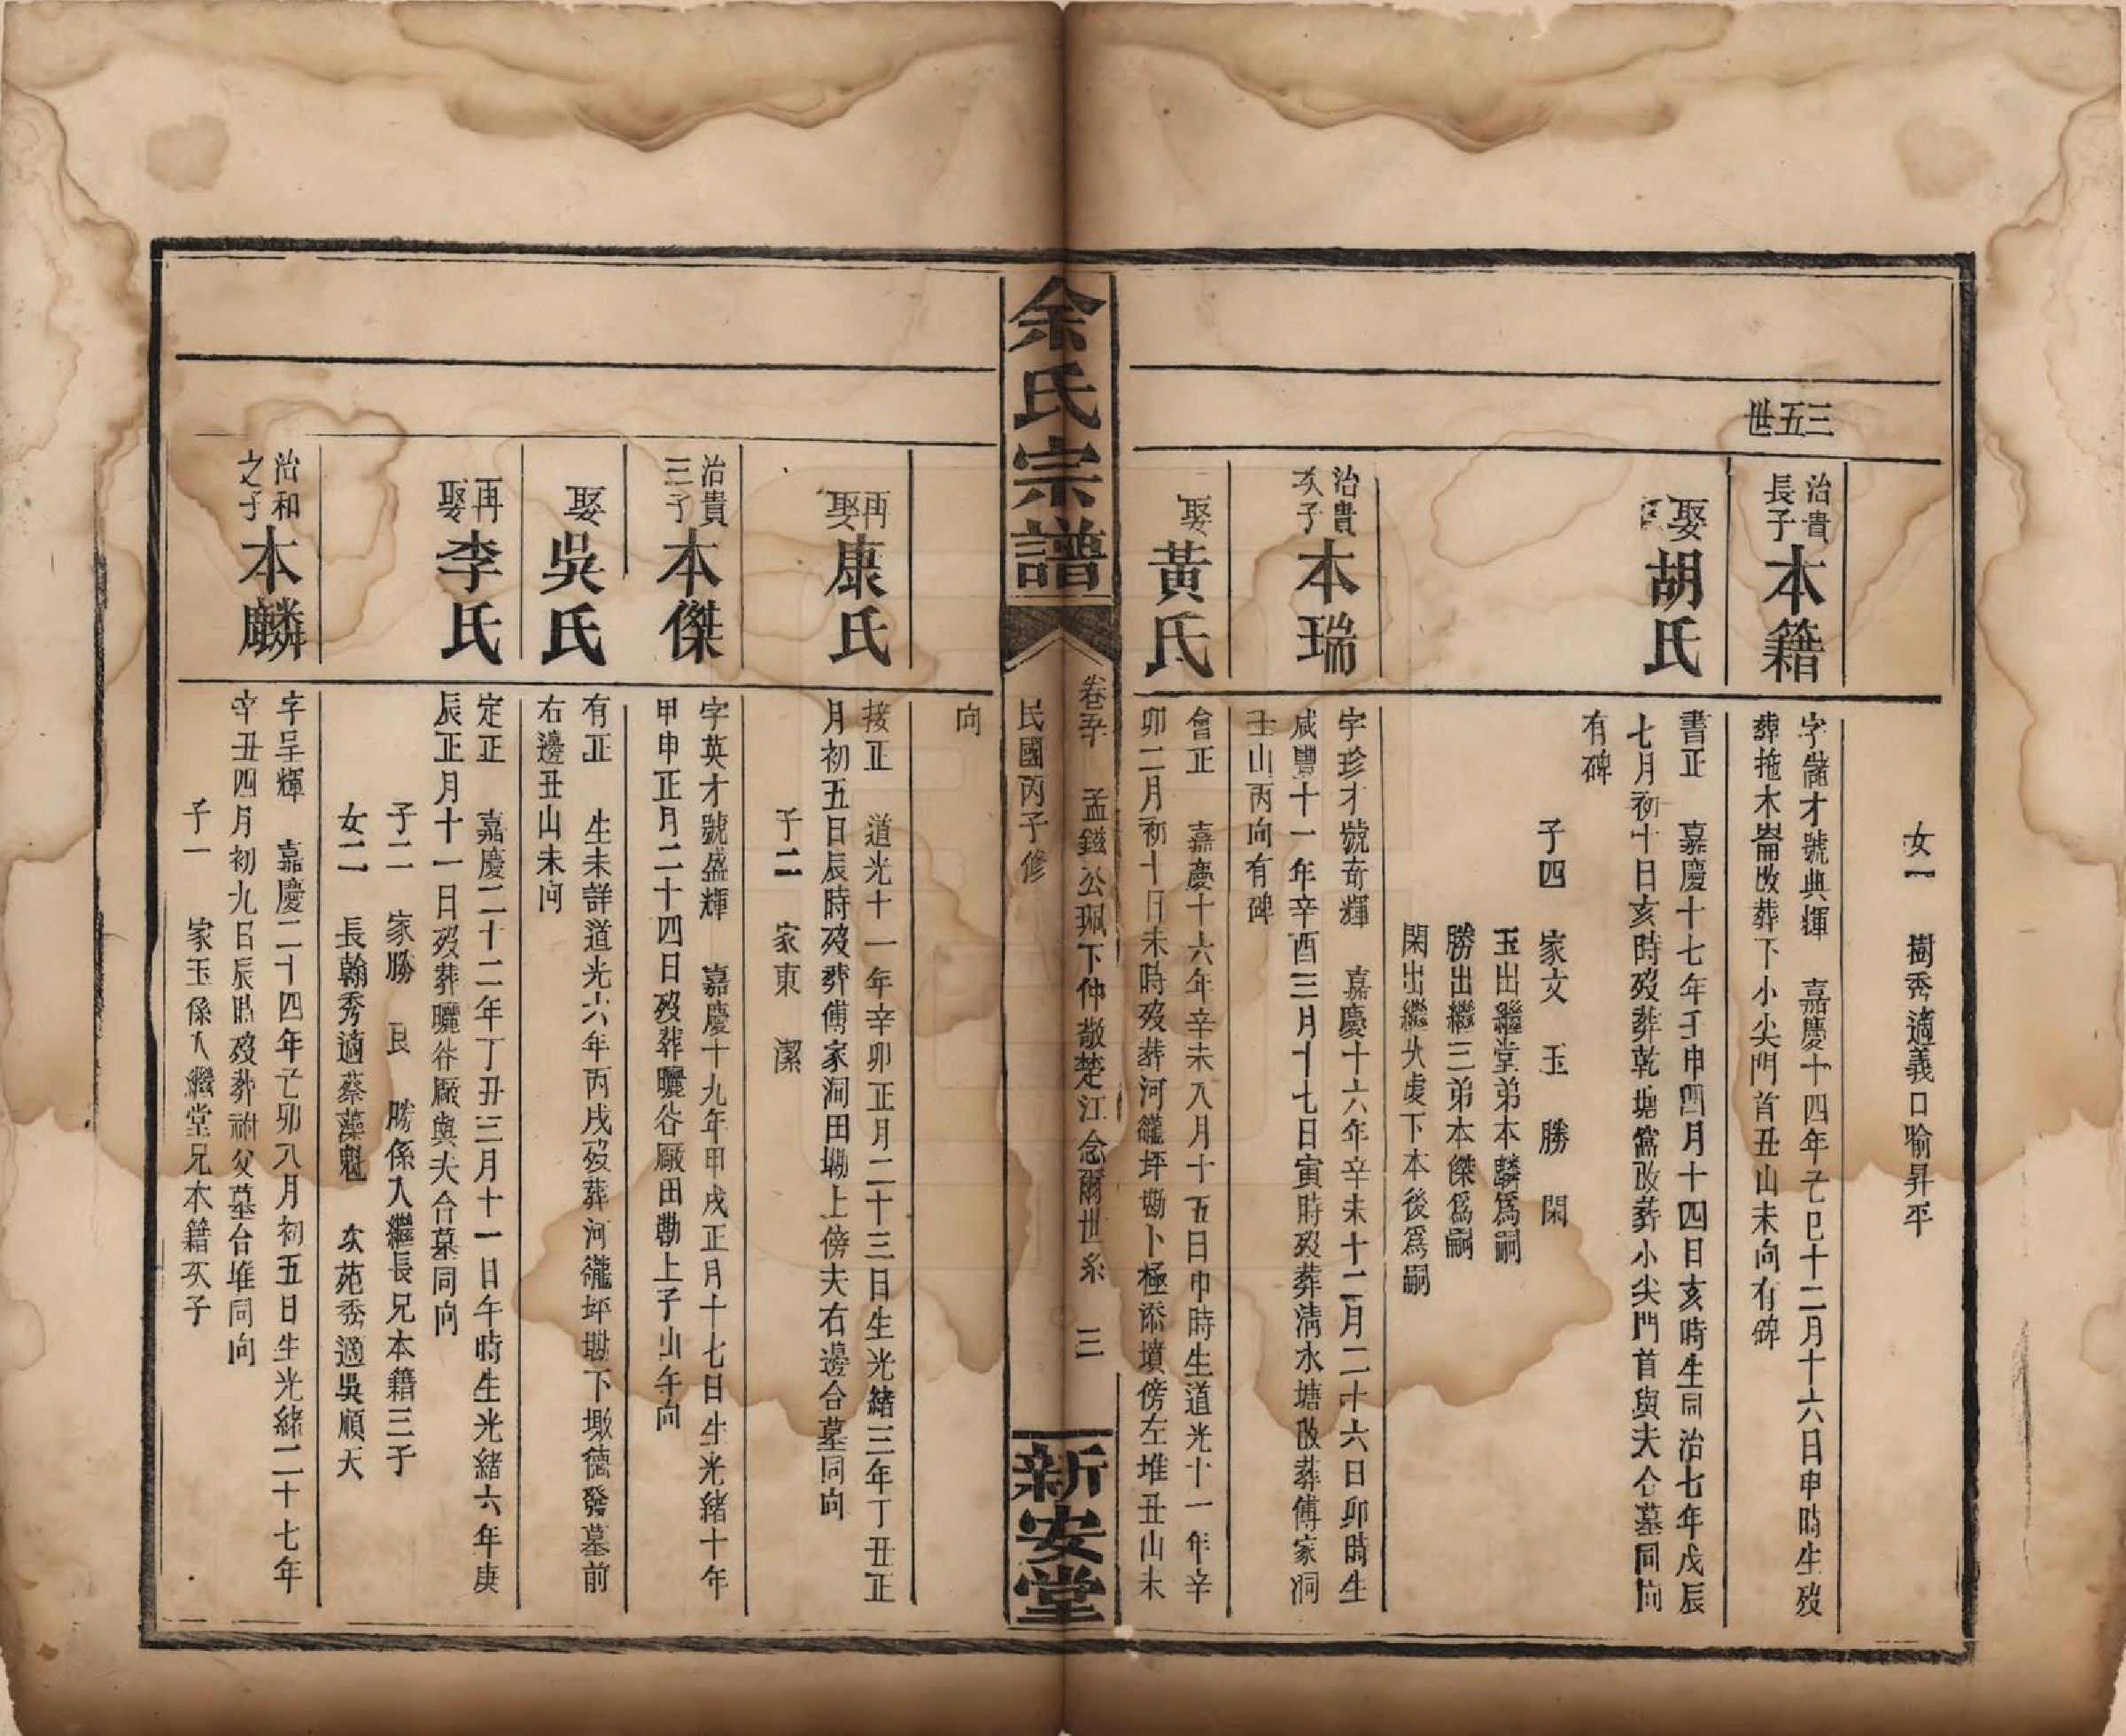 女一 樹秀適義口喻昇平
三五世
治貴長子 本籍
字儲才號典揮 嘉慶十四年己巳十二月十六日申時生歿
葬拖木崙改葬下小尖門首丑山未向有碑
娶 胡氏
書正 嘉慶十七年壬申四月十四日亥時生同治七年戊辰
七月初十日亥時歿葬乾塘改葬小尖門首與夫合墓同向
有碑
子四 家文 玉 勝 閑
玉出繼堂弟本麟為嗣
勝出繼三弟本傑為嗣
閑出繼下本後為嗣
治貴次子 本瑞
字珍才號奇輝 嘉慶十六年辛未十二月二十六日卯時生
咸豐十一年辛酉三月十七日寅時歿葬清水塘改葬傅家洞
壬山丙向有碑
娶 黃氏
會正 嘉慶十六年辛未八月十五日巾時生道光十一年辛
卯二月初十日未時歿葬河坪極添墳傍左堆丑山未
余氏宗譜
卷 孟鎡公珮下仲敬楚江念爾世系 三
民國丙子修
新安堂
向
再娶 康氏
接正 道光十一年辛卯正月二十三日生光緒三年丁丑正
月初五日辰時歿葬傅家洞田上傍夫右邊合墓同向
子二 家東 潔
治貴三子 本傑
字英才號盛輝 嘉慶十九年甲戌正月十七日生光緒十年
甲申正月二十四日歿葬曬谷廠田上子山午向
娶 吳氏
有正 生未詳道光六年丙戌歿葬河坪下德發墓前
右邊丑山未向
再娶 李氏
定正 嘉慶二十二年丁丑三月十一日午時生光緒六年庚
辰正月十一日歿葬曬谷廠與夫合墓同向
子二 家勝 良 勝係入繼長兄本籍三子
女二 長翰秀適蔡藻魁 次苑秀適吳順天
治和之子 本麟
字呈輝 嘉慶二十四年己卯八月初五日生光緒二十七年
辛丑四月初九日辰時歿葬祔父墓台堆同向
子一 家玉係入繼堂兄本籍次子